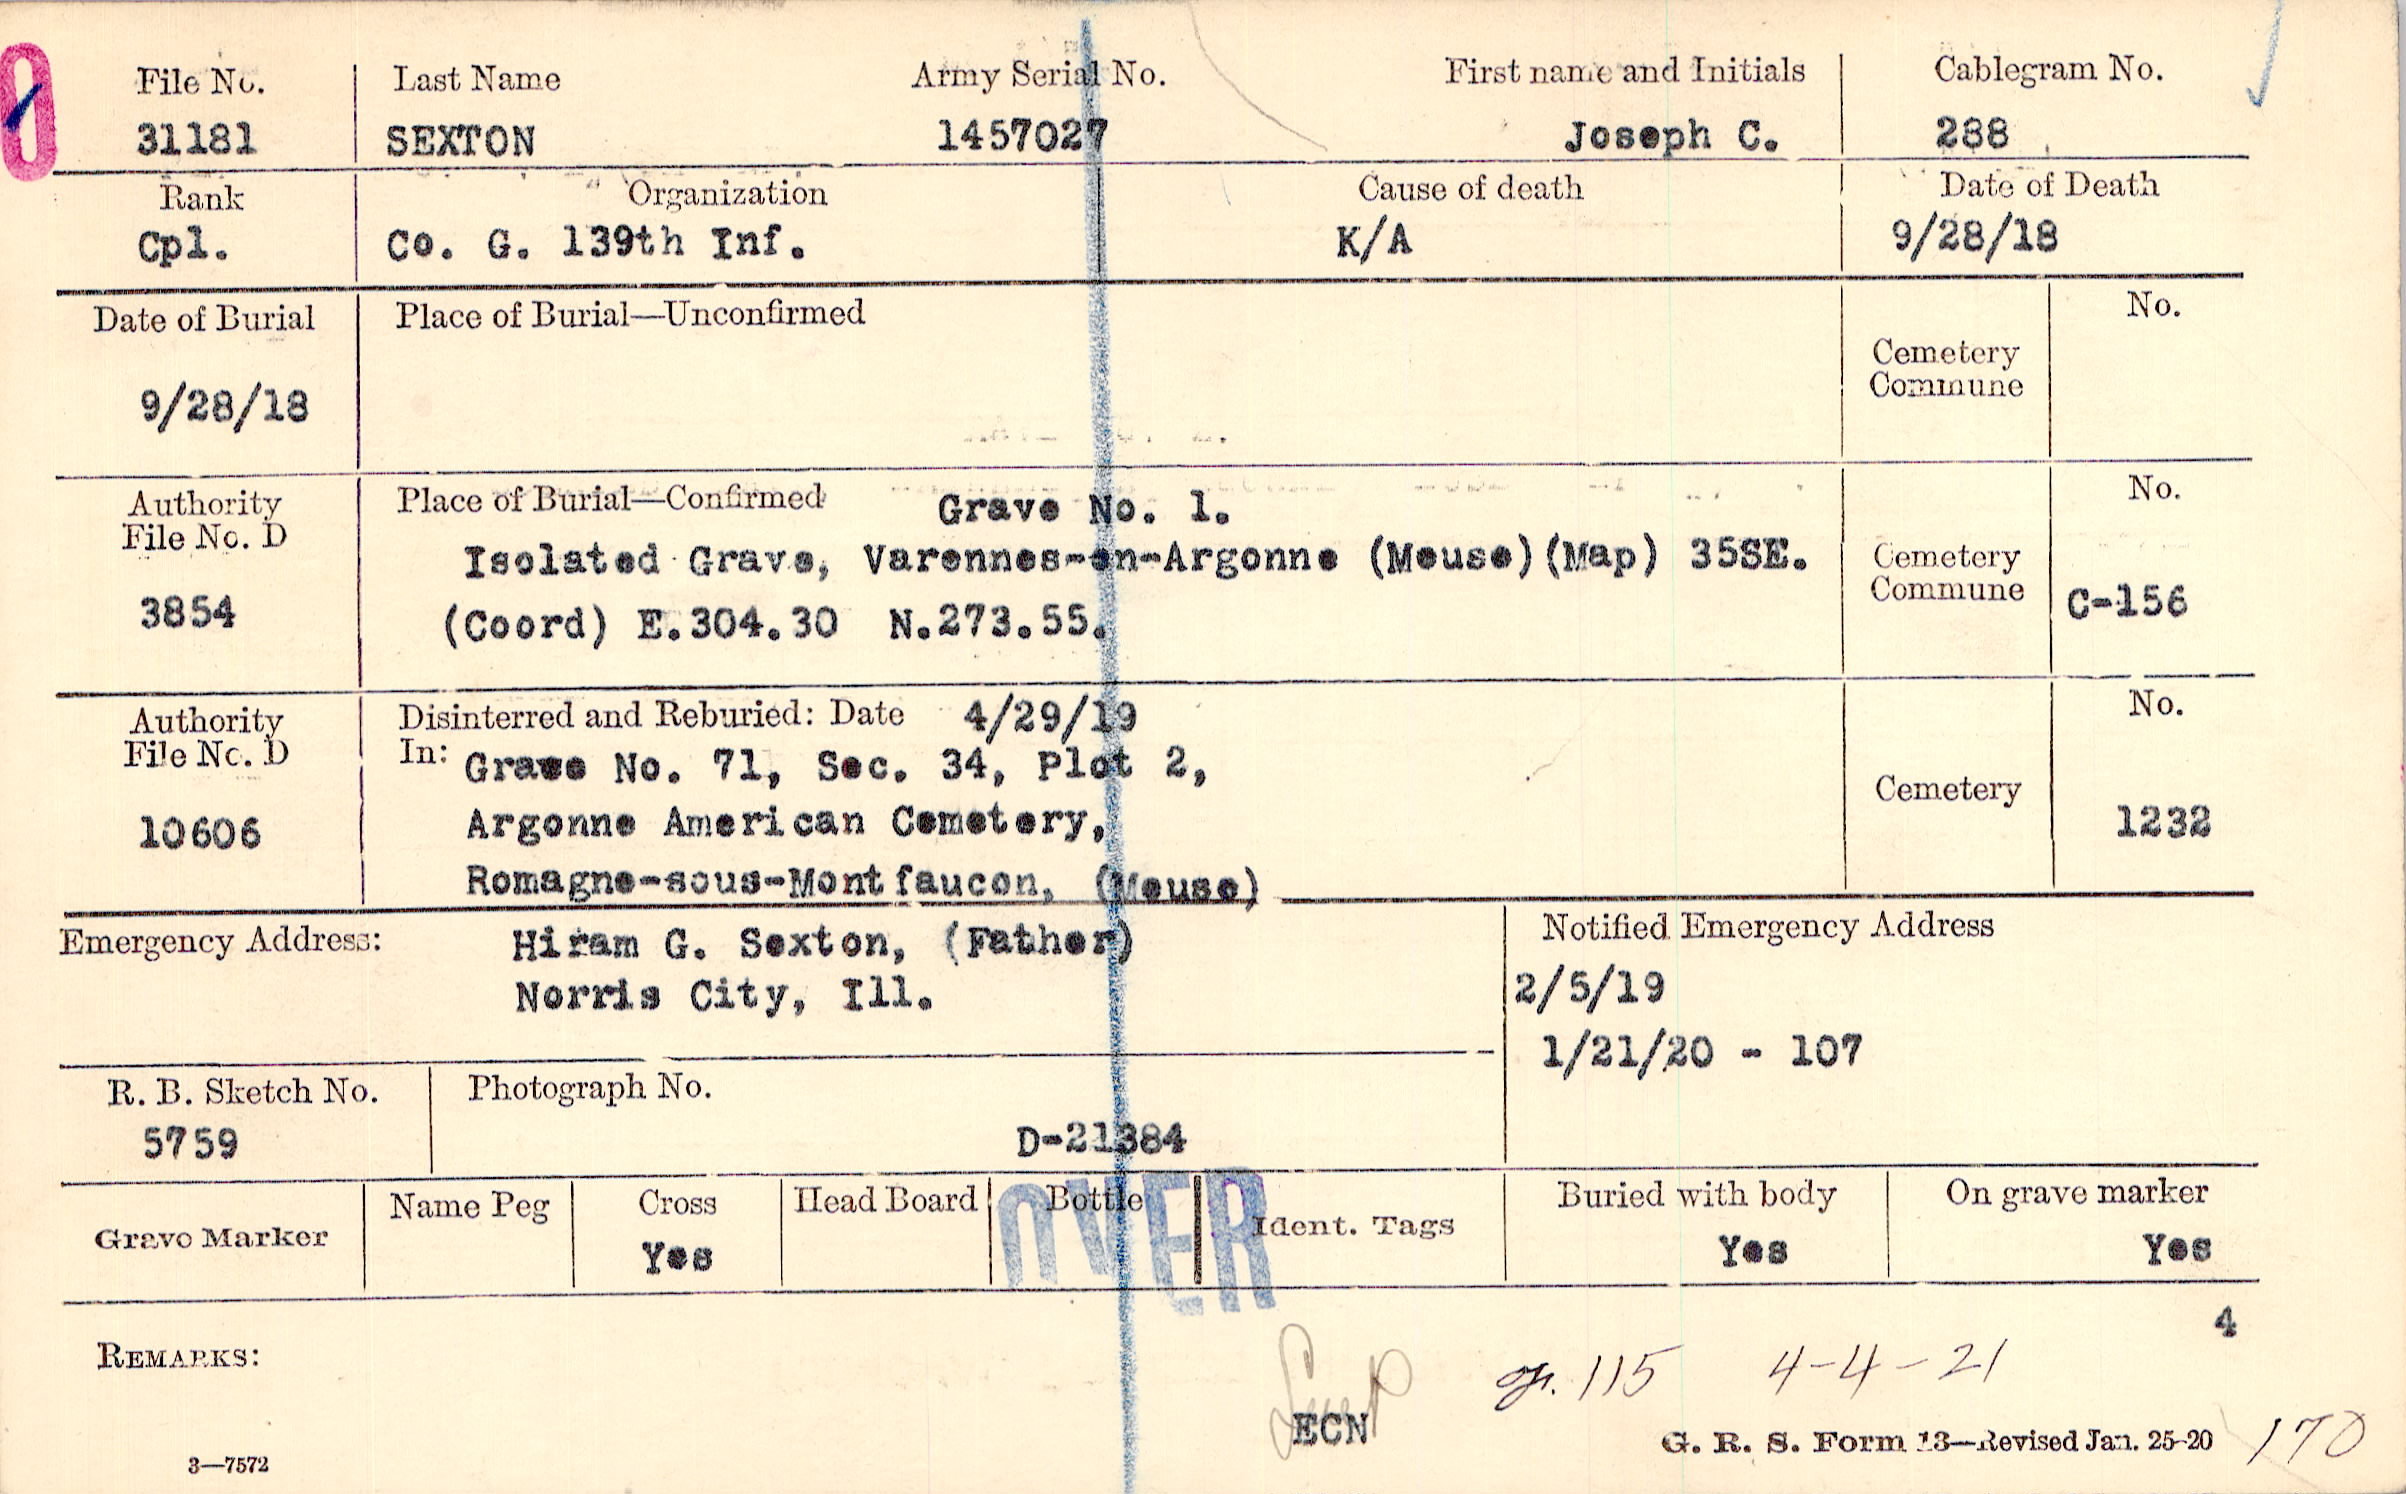 File No. Last Name Army Serial No. First name and Initials Cablegram No.
31181 SEXTON 1457027 Joseph C. 288
Rank Organization Cause of death Date of Death
Cpl. Co. G. 139th Inf. K/A 9/28/18
Date of Burial Place of Burial—Unconfirmed No.
Cemetery
Commune
9/28/18
Authority Place of Burial—Confirmed Grave No. 1. No.
File No. D
Isolated Grave, Varennes-en-Argonne (Meuse)(Map) 35SE. Cemetery
Commune C-156
3854 (Coord) E.304.30 N.273.55.
Authority Disinterred and Reburied: Date 4/29/19 No.
File No. D In: Grave No. 71, Sec. 34, Plot 2,
Cemetery
10606 Argonne American Cemetery, 1232
Romagne-sous-Montfaucon, (Meuse)
Emergency Address: Hiram G. Sexton, (Father) Notified Emergency Address
Norris City, Ill. 2/5/19
1/21/20 - 107
R. B. Sketch No. Photograph No.
5759 D-21384
Grave Marker Name Peg Cross Head Board Bottle Ident. Tags Buried with body On grave marker
Yes Yes Yes
OVER
4
REMARKS:
115 4-4-21
ECN
G. R. S. Form 13—Revised Jan. 25-20 170
3—7572